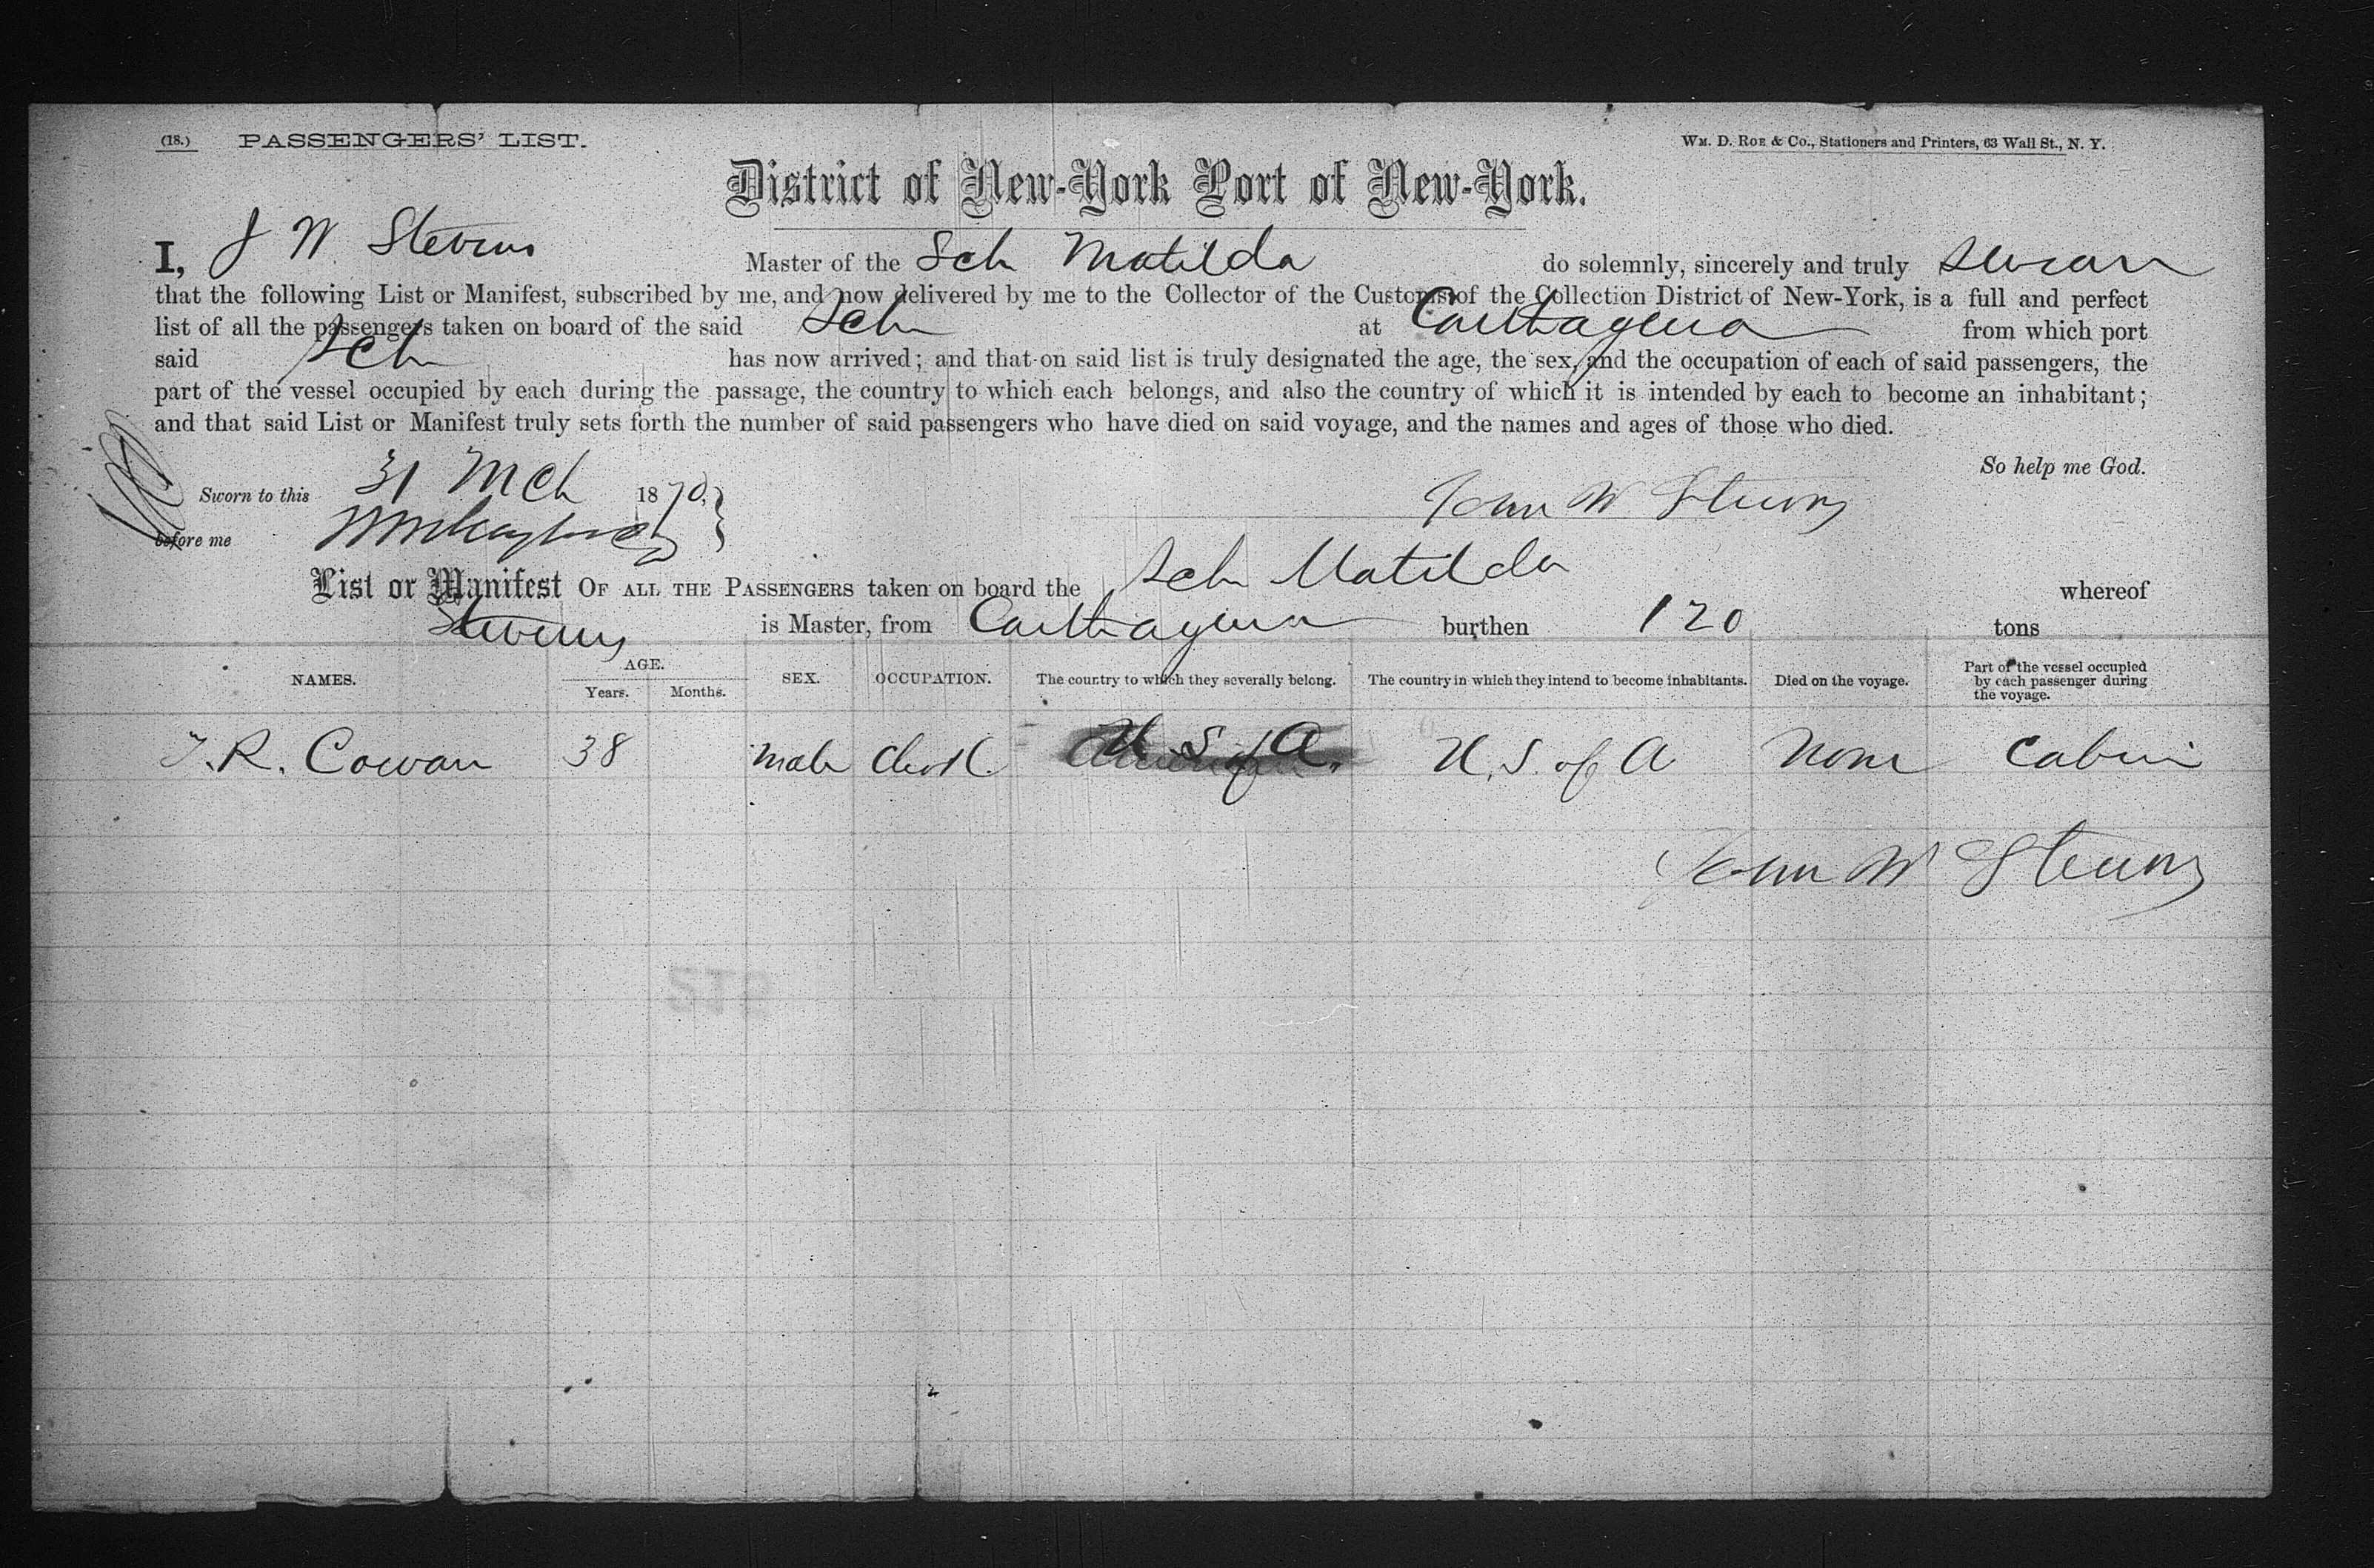 (18.) PASSENGERS' LIST.
WM. D. ROE & Co., Stationers and Printers, 63 Wall St., N. Y.
District of New-York Port of New-York.
I, J W. Stevens Master of the Sch Matilda do solemnly, sincerely and truly swear
that the following List or Manifest, subscribed by me, and now delivered by me to the Collector of the Customs of the Collection District of New-York, is a full and perfect
list of all the passengers taken on board of the said Sch at Carthagena from which port
said Sch has now arrived; and that on said list is truly designated the age, the sex, and the occupation of each of said passengers, the
part of the vessel occupied by each during the passage, the country to which each belongs, and also the country of which it is intended by each to become an inhabitant;
and that said List or Manifest truly sets forth the number of said passengers who have died on said voyage, and the names and ages of those who died.
So help me God.
Sworn to this 31 Mch 1870,
before me
John W Stevens
List or Manifest OF ALL THE PASSENGERS taken on board the Sch Matilda whereof
Stevens is Master, from Carthagena burthen 120 tons
NAMES. AGE. Years. Months. SEX. OCCUPATION. The country to which they severally belong. The country in which they intend to become inhabitants. Died on the voyage. Part of the vessel occupied by each passenger during the voyage.
T. R. Cowan 38 male Clerk. U S of A. U. S. of A None Cabin
John W Stevens